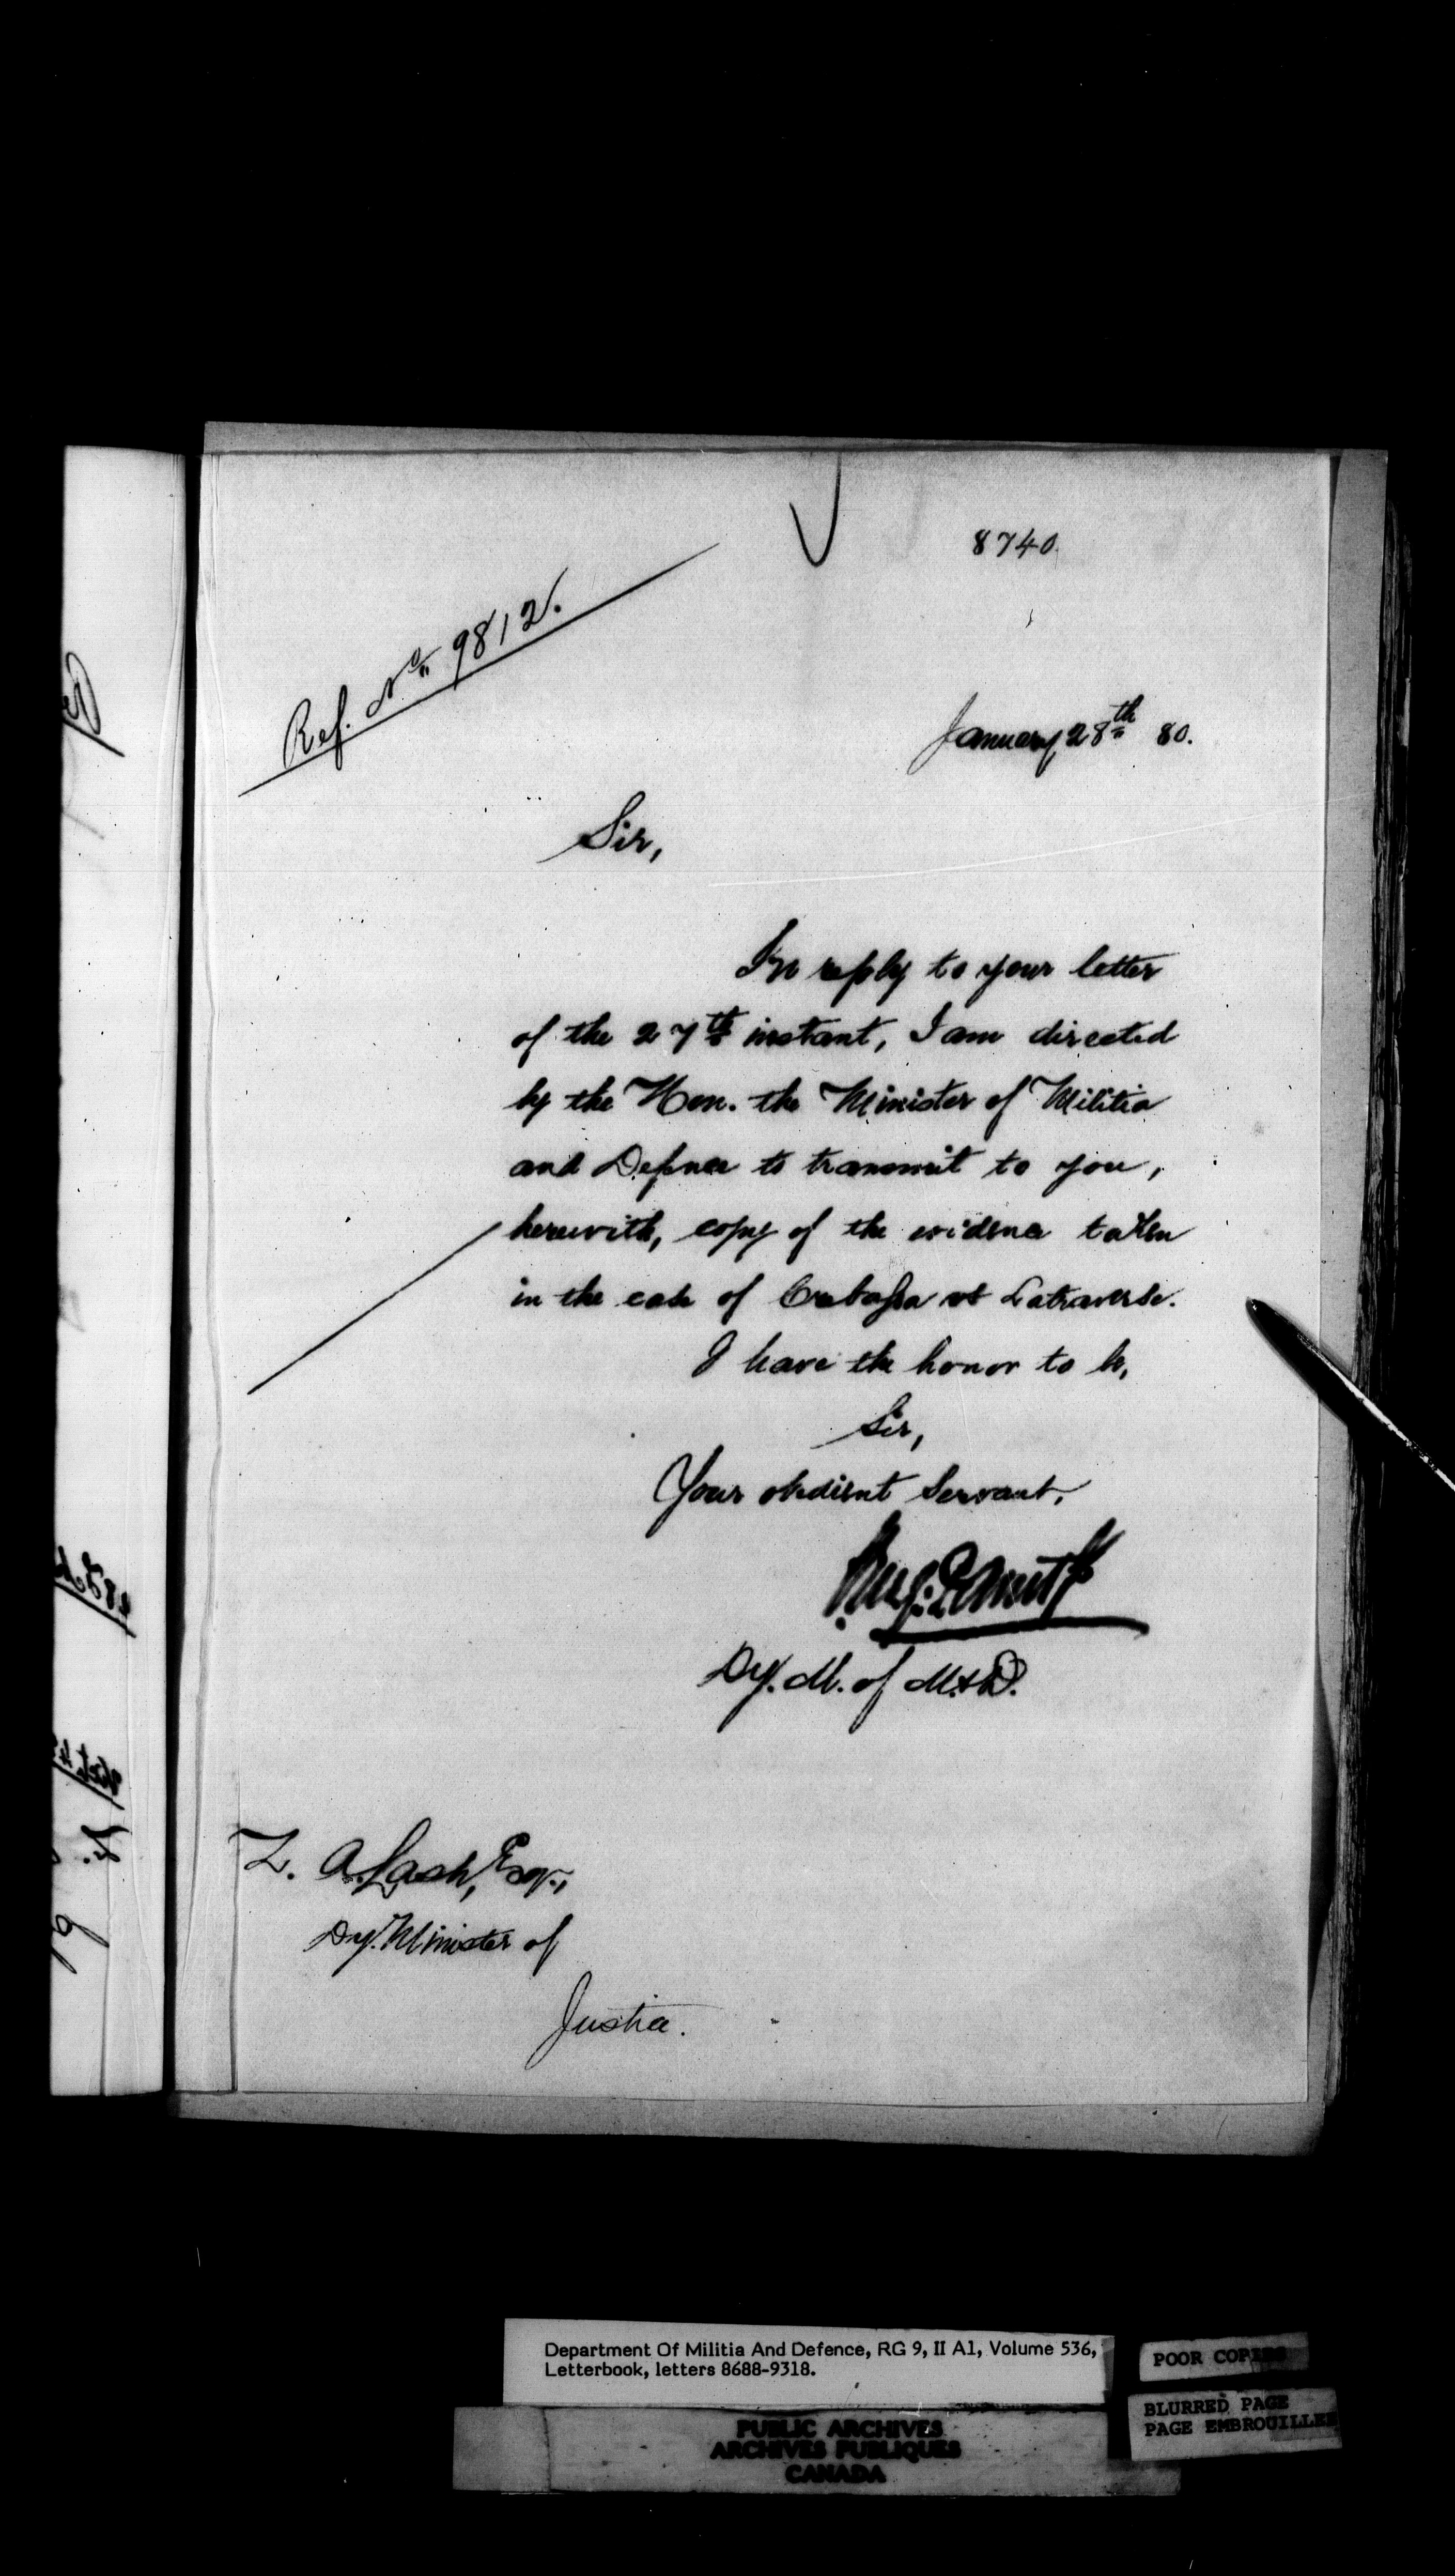 8740.
Ref. No. 9812.
January 28th 80.
Sir,
In reply to your letter
of the 27th instant, I am directed
by the Hon. the Minister of Militia
and Defence to transmit to you,
herewith, copy of the evidence taken
in the case of vs Latraverse.
I have the honor to be,
Sir,
Your obedient Servant,
Dy. M. of M. & D.
Z. A. Lash, Esq.,
Dy. Minister of
Justice.
Department Of Militia And Defence, RG 9, II A1, Volume 536,
Letterbook, letters 8688-9318.
POOR COPIES
BLURRED PAGE
PAGE EMBROUILLEE
PUBLIC ARCHIVES
ARCHIVES PUBLIQUES
CANADA